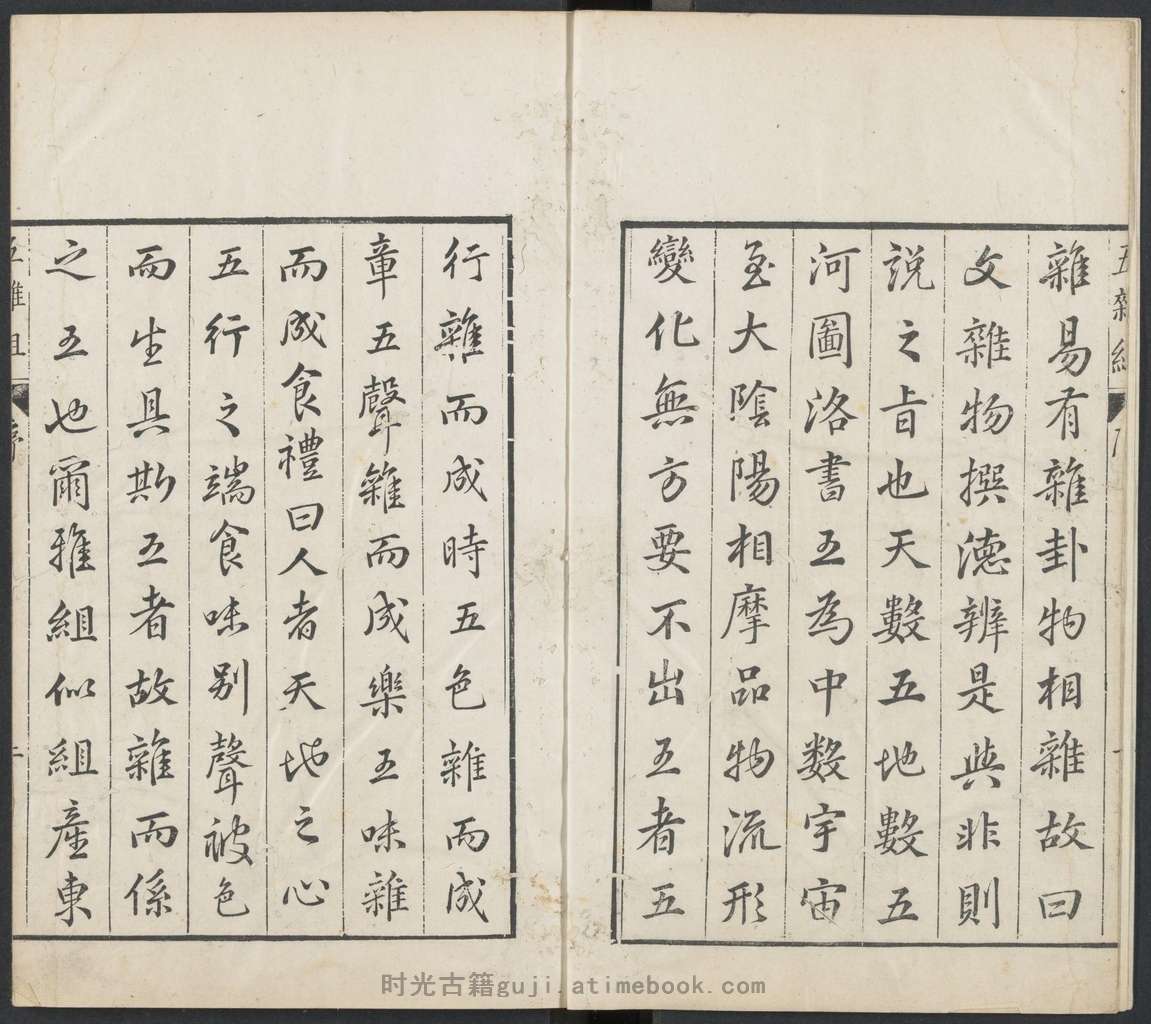 雜易有雜卦物相雜故曰
文雜物撰德辨是與非則
說之旨也天數五地數五
河圖洛書五為中数宇宙
至大陰陽相摩品物流形
變化無方要不出五者五
行雜而成時五色雜而成
章五聲雜而成樂五味雜
而成食禮曰人者天地之心
五行之端食味別聲被色
而生具斯五者故雜而係
之五也爾雅組似組產東
五雜組
序
时光古籍guji.atimebook.com